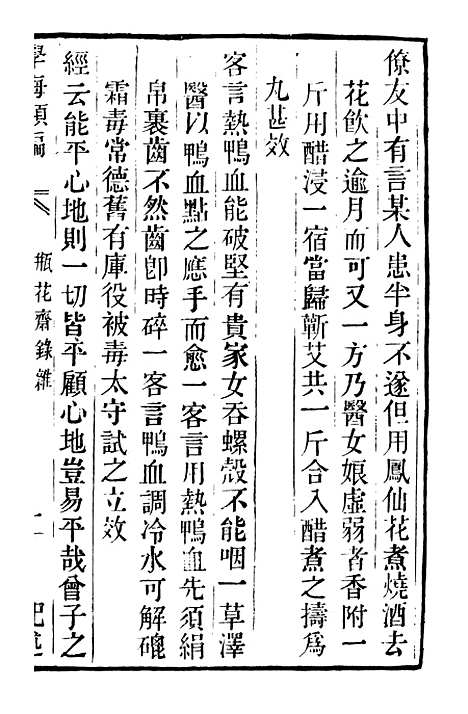 僚友中有言某人患半身不遂但用鳳仙花煮燒酒去
花飮之逾月而可又一方乃醫女娘虛弱者香附一
斤用醋浸一宿當歸蘄艾共一斤合入醋煮之擣爲
丸甚效
客言熱鴨血能破堅有貴家女吞螺殼不能咽一草澤
醫以鴨血點之應手而愈一客言用熱鴨血先須絹
帛裹齒不然齒卽時碎一客言鴨血調冷水可解磇
霜毒常德舊有庫役被毒太守試之立效
經云能平心地則一切皆平顧心地豈易平哉曾子之
學海類編
瓶花齋錄雜
二
記述